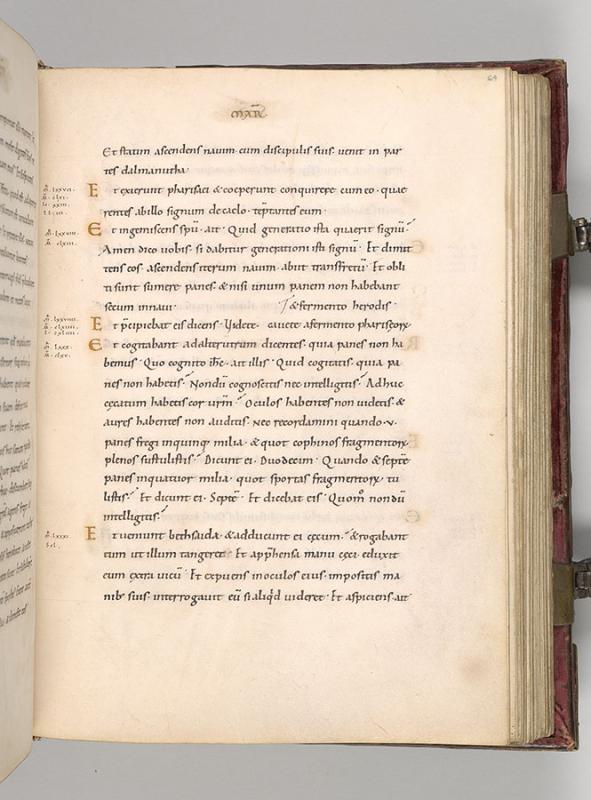 64
MAR̄
Et statim ascendens nauim cum discipulis suis· uenit in par
tes dalmanutha·
Et exierunt pharisaei & coeperunt conquirere cum eo· quae
rentes ab illo signum de caelo· teptantes eum·
Et ingemiscens spū· ait· Quid generatio ista quaerit signū·
Amen dico uobis· si dabitur generationi isti signū· Et dimit
tens eos· ascendens iterum nauim· abiit trans fretū· Et obli
ti sunt sumere panes· & nisi unum panem non habebant
secum in naui· / & fermento herodis·
Et p̄cipiebat eis dicens· Videte· cauete a fermento phariseoꝝ
Et cogitabant ad alterutrum dicentes· quia panes non ha
bemus· Quo cognito ih̄c· ait illis· Quid cogitatis· quia pa
nes non habetis· Nondū cognoscitis nec intelligitis· Adhuc
cęcatum habetis cor ur̄m· Oculos habentes non uidetis· &
aures habentes non auditis· Nec recordamini quando ·v·
panes fregi in quinq; milia· & quot cophinos fragmentoꝝ
plenos sustulistis· Dicunt ei· Duodecim· Quando & septē
panes in quattuor milia· quot sportas fragmentoꝝ tu
listis· Et dicunt ei· Septē· Et dicebat eis· Quom̊ nondū
intelligitis·
Et ueniunt bethsaida· & adducunt ei cęcum· & rogabant
eum ut illum tangeret· Et app̄hensa manu cęci· eduxit
eum extra uicū· Et expuens in oculos eius· impositis ma
nib; suis· interrogauit eū si aliqd uideret· Et aspiciens· ait·